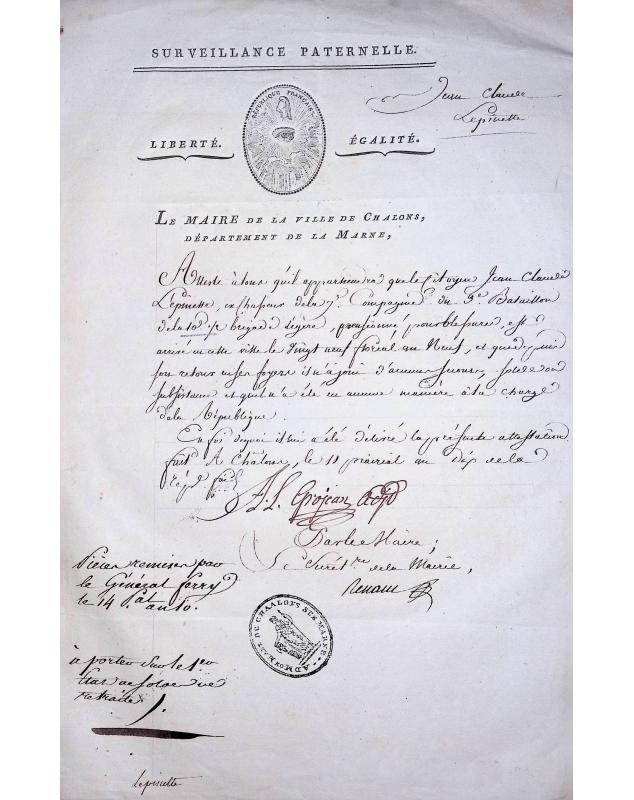 SURVEILLANCE PATERNELLE.
Jean Claude
Lepinette
RÉPUBLIQUE FRANÇAISE
LIBERTÉ. ÉGALITÉ.
LE MAIRE DE LA VILLE DE CHALONS,
DÉPARTEMENT DE LA MARNE,
Atteste à tous qu'il appartiendra que le Citoyen Jean Claude
Lepinette, ex chasseur de la 7e Compagnie du 3e Bataillon
de la 10e 1/2 brigade Légère, pensionné pour blessures, est
arrivé en cette ville le Vingt neuf floréal an Neuf, et que depuis
son retour en ses foyers il n'a joui d'aucun secours, solde ou
subsistance et qu'il n'a été en aucune manière à la charge
de la République.
En foi de quoi il lui a été délivré la présente attestation
fait à Châlons, le 11 prairial an dix de la
Rép. française
Grojean adj
Par le Maire;
Le Secrét.re de la Mairie,
Pièces remises par
le Général ferry
le 14 an 10.
ADMON MAIRE DU CHAALONS SUR MARNE
à porter sur le 1er
Etat de solde de
Retraite
Lepinette